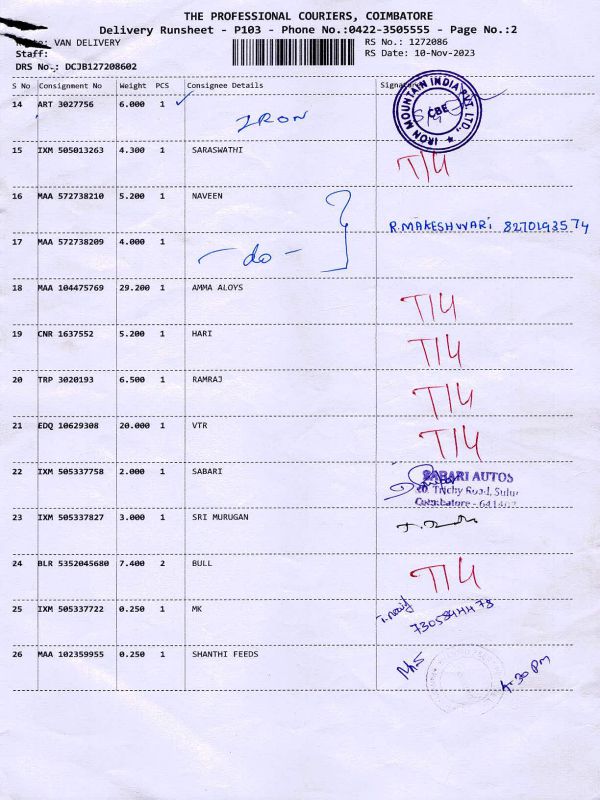 THE PROFESSIONAL COURIERS, COIMBATORE
Delivery Runsheet - P103 - Phone No.:0422-3505555 - Page No.:2
VAN DELIVERY RS No.: 1272086
Staff: RS Date: 10-Nov-2023
DRS No.: DCJB127208602
S No Consignment No Weight PCS Consignee Details
14 ART 3027756 6.000 1 ✓ IRON
IRON MOUNTAIN INDIA PVT. LTD., CBE
15 IXM 505013263 4.300 1 SARASWATHI T14
16 MAA 572738210 5.200 1 NAVEEN
R.MAKESHWARI 8270193574
17 MAA 572738209 4.000 1 - do -
18 MAA 104475769 29.200 1 AMMA ALOYS T14
19 CNR 1637552 5.200 1 HARI T14
20 TRP 3020193 6.500 1 RAMRAJ T14
21 EDQ 10629308 20.000 1 VTR T14
22 IXM 505337758 2.000 1 SABARI SABARI AUTOS
Trichy Road, Sulur
Coimbatore - 641402
23 IXM 505337827 3.000 1 SRI MURUGAN
24 BLR 5352045680 7.400 2 BULL T14
25 IXM 505337722 0.250 1 MK
7305844478
26 MAA 102359955 0.250 1 SHANTHI FEEDS
4.30 PM